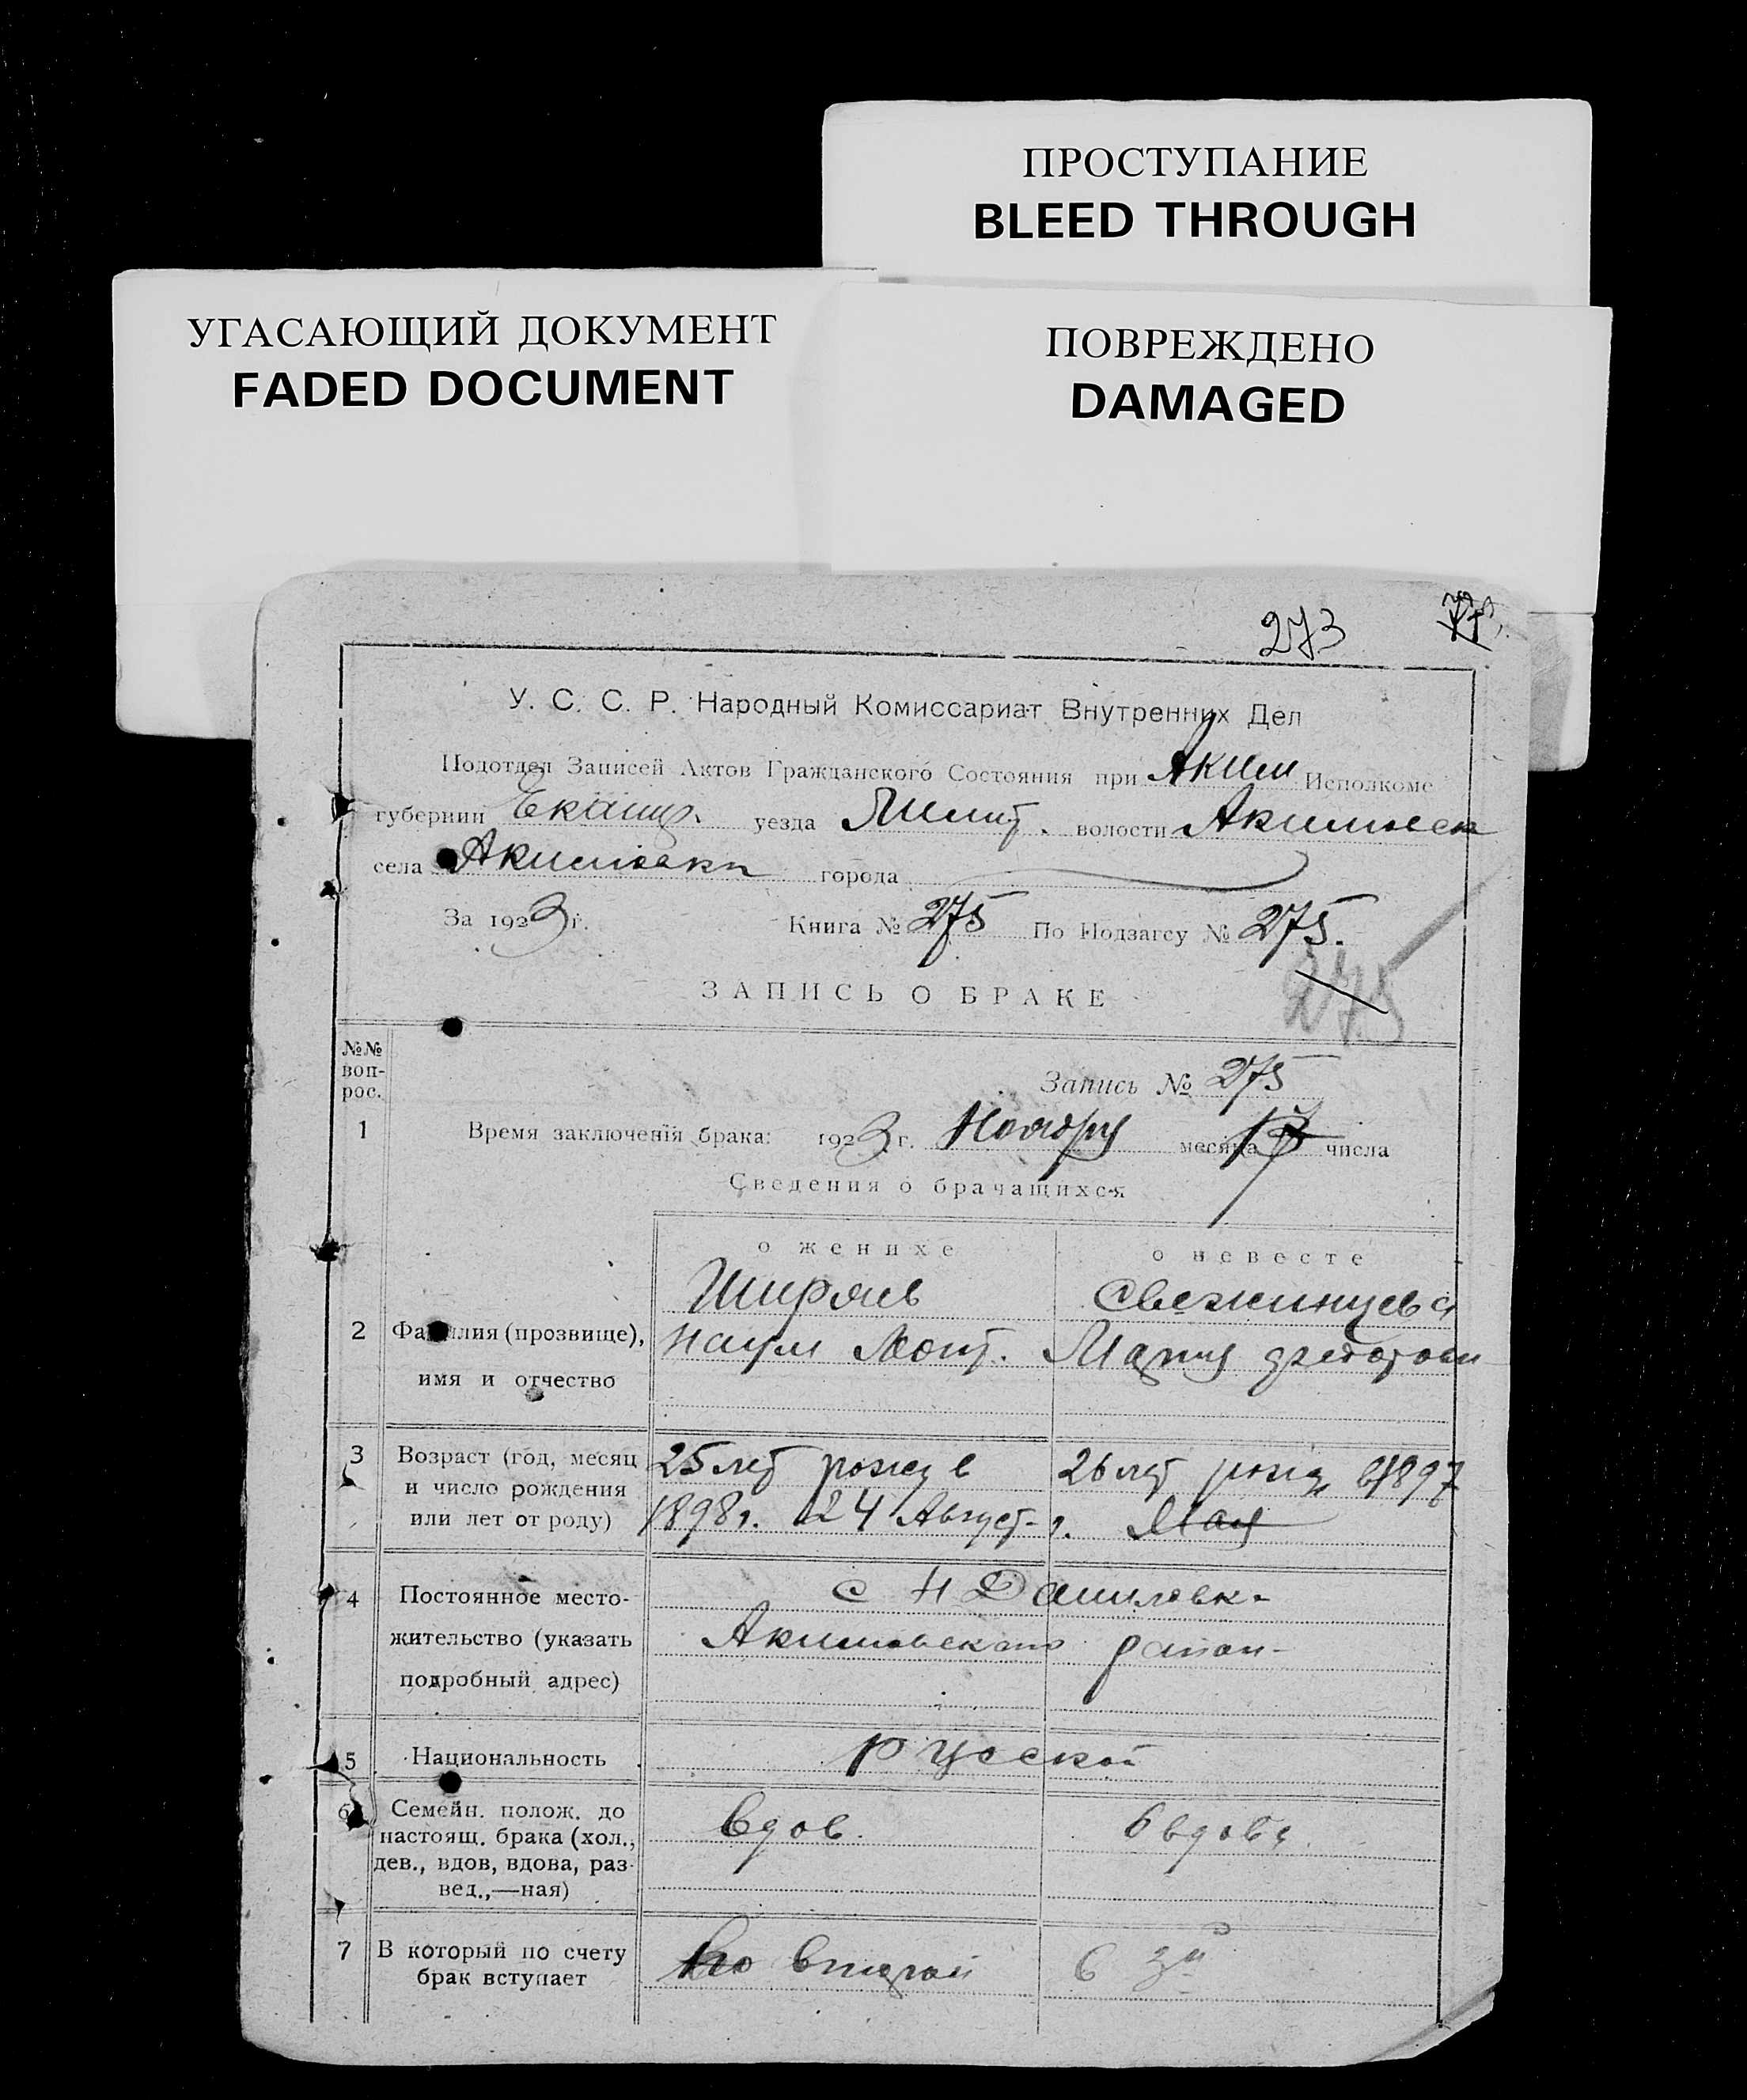 ПРОСТУПАНИЕ
BLEED THROUGH
УГАСАЮЩИЙ ДОКУМЕНТ
FADED DOCUMENT
ПОВРЕЖДЕНО
DAMAGED
273
У. С. С. Р. Народный Комиссариат Внутренних Дел
Подотдел Записей Актов Гражданского Состояния при Аким Исполкоме
губернии Екатир. уезда Мелит. волости Акимовск
села Акимовки города
За 1923 г. Книга № 275 По Подзагсу № 275.
275
ЗАПИСЬ О БРАКЕ
№№ воп-рос.
Запись № 275
1 Время заключенiя брака: 1923 г. Ноября месяца 17 числа
Сведения о брачащихся
о женихе о невесте
Ширяев Свежинцева
2 Фамилия (прозвище), Наум Мария
имя и отчество
3 Возраст (год, месяц 25 лет рожд в 26 лет рожд в 1897
и число рождения
или лет от роду) 1898 г. 24 Август- г. Мая
4 Постоянное место- с Н Даниловк-
жительство (указать Акимовского район-
подробный адрес)
5 Национальность русской
6 Семейн. полож. до
настоящ. брака (хол., вдов. вдова
дев., вдов, вдова, раз-
вед.,—ная)
7 В который по счету во второй в 3й
брак вступает